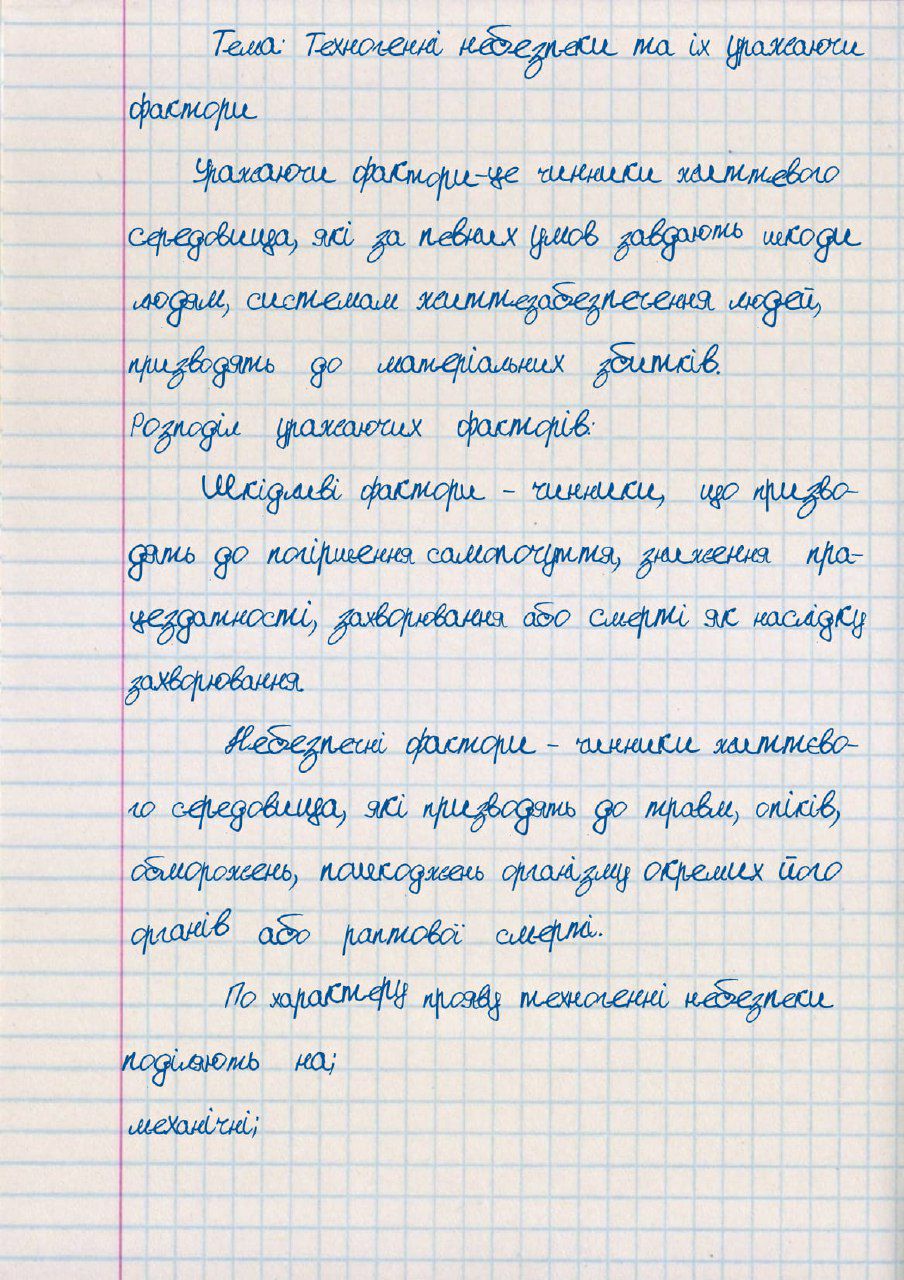 Тема: Техногенні небезпеки та їх уражаючи
фактори
Уражаючи фактори-це чинники життєвого
середовища, які за певних умов завдають шкоди
людям, системам життєзабезпечення людей,
призводять до матеріальних збитків.
Розподіл уражаючих факторів:
Шкідливі фактори - чинники, що призво-
дять до погіршення самопочуття, зниження пра-
цездатності, захворювання або смерті як наслідку
захворювання.
Небезпечні фактори - чинники життєво-
го середовища, які призводять до травм, опіків,
обморожень, пошкоджень організму окремих його
органів або раптової смерті.
По характеру прояву техногенні небезпеки
поділяють на;
механічні;